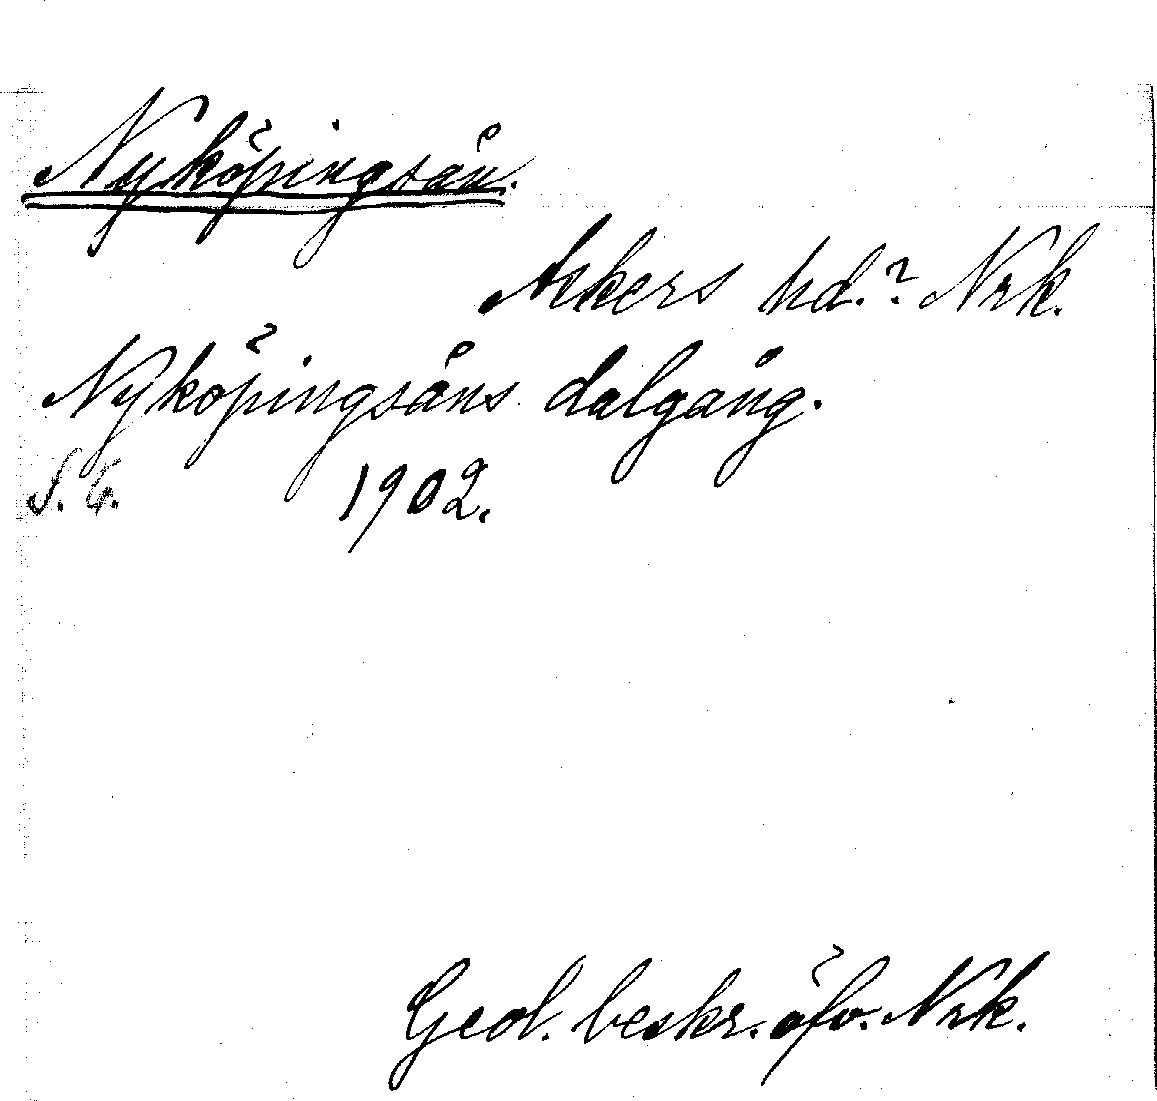 Nyköpingsån.
Askers hd.? Nrk.
Nyköpingsåns dalgång.
S. 6. 1902.
Geol. beskr. öfv. Nrk.